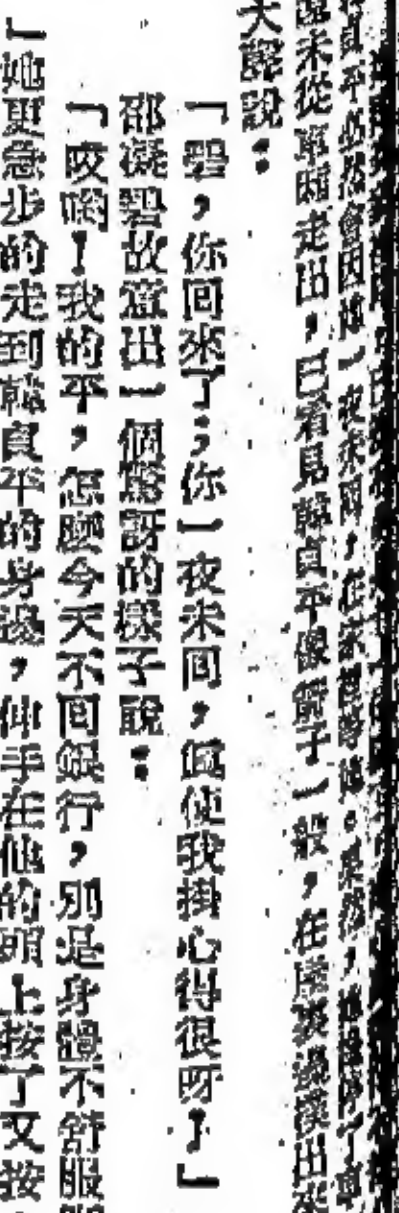 貞平必然會因她一夜未回，在家裡等她。果然，
還未從車廂走出，已看見韓貞平像箭子一般，在
大聲說：
「碧，你回來了；你一夜未回，眞使我掛心得很呀！」
邵凝碧故意出一個驚訝的樣子說：
「哎喲！我的平，怎麼今天不回銀行，別是身體不舒服
」她更急步的走到韓貞平的身邊，伸手在他的頭上按了又按